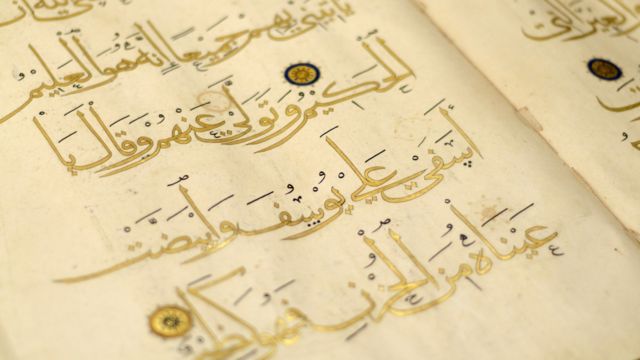 العِيرَ الَّتِي
يَأْتِيَنِي بِهِمْ جَمِيعًا إِنَّهُ هُوَ الْعَلِيمُ
الْحَكِيمُ وَتَوَلَّى عَنْهُمْ وَقَالَ يَا
أَسَفَى عَلَى يُوسُفَ وَابْيَضَّتْ
عَيْنَاهُ مِنَ الْحُزْنِ فَهُوَ كَظِيمٌ